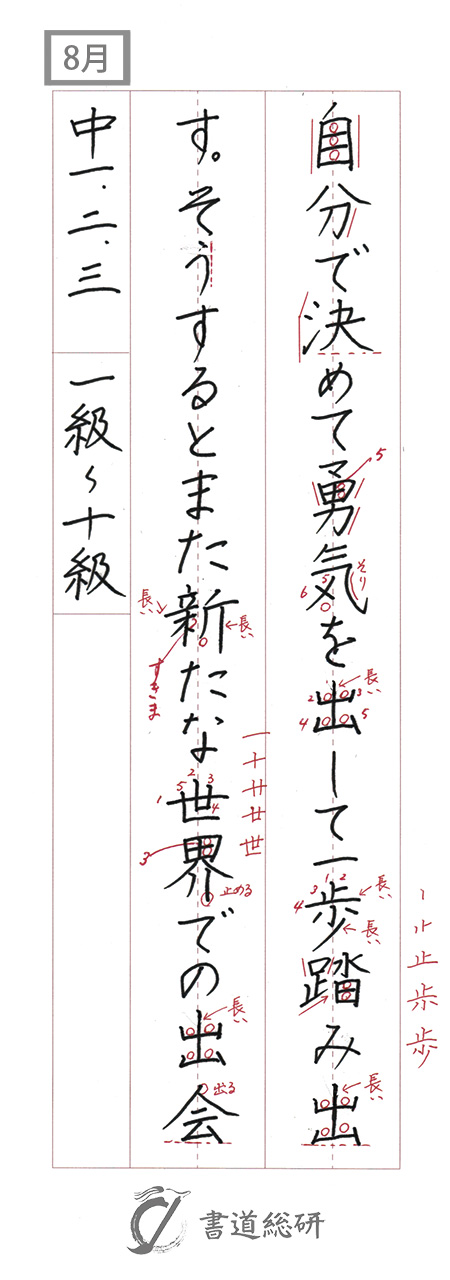 8月
自分で決めて勇気を出して一歩踏み出
す。そうするとまた新たな世界での出会
中一、二、三 一級〜十級
5
そり
5
6
長い
2
3
4
5
1 2
3
4
長い
長い
長い
長い
長い
すきま
2
1
5
2
3
4
3
止める
長い
出る
書道総研